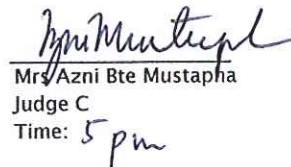 Mrs Azni Bte Mustapha
Judge C
Time: 5 pm